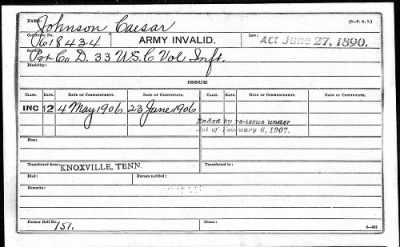 NAME: Johnson, Caesar
CERTIFICATE No. 618434 ARMY INVALID. LAW: Act June 27, 1890.
SERVICE: Pvt Co D. 33 U.S.C Vol Inft.
DISABILITY:
ISSUES
CLASS. RATE. DATE OF COMMENCEMENT. DATE OF CERTIFICATE. CLASS. RATE. DATE OF COMMENCEMENT. DATE OF CERTIFICATE.
INC 12 4 May 1906 23 June 1906
Ended by re-issue under
Act of February 6, 1907.
Transferred from KNOXVILLE, TENN.
Died: Death notified:
Remarks:
Former Roll No. 151. Date: